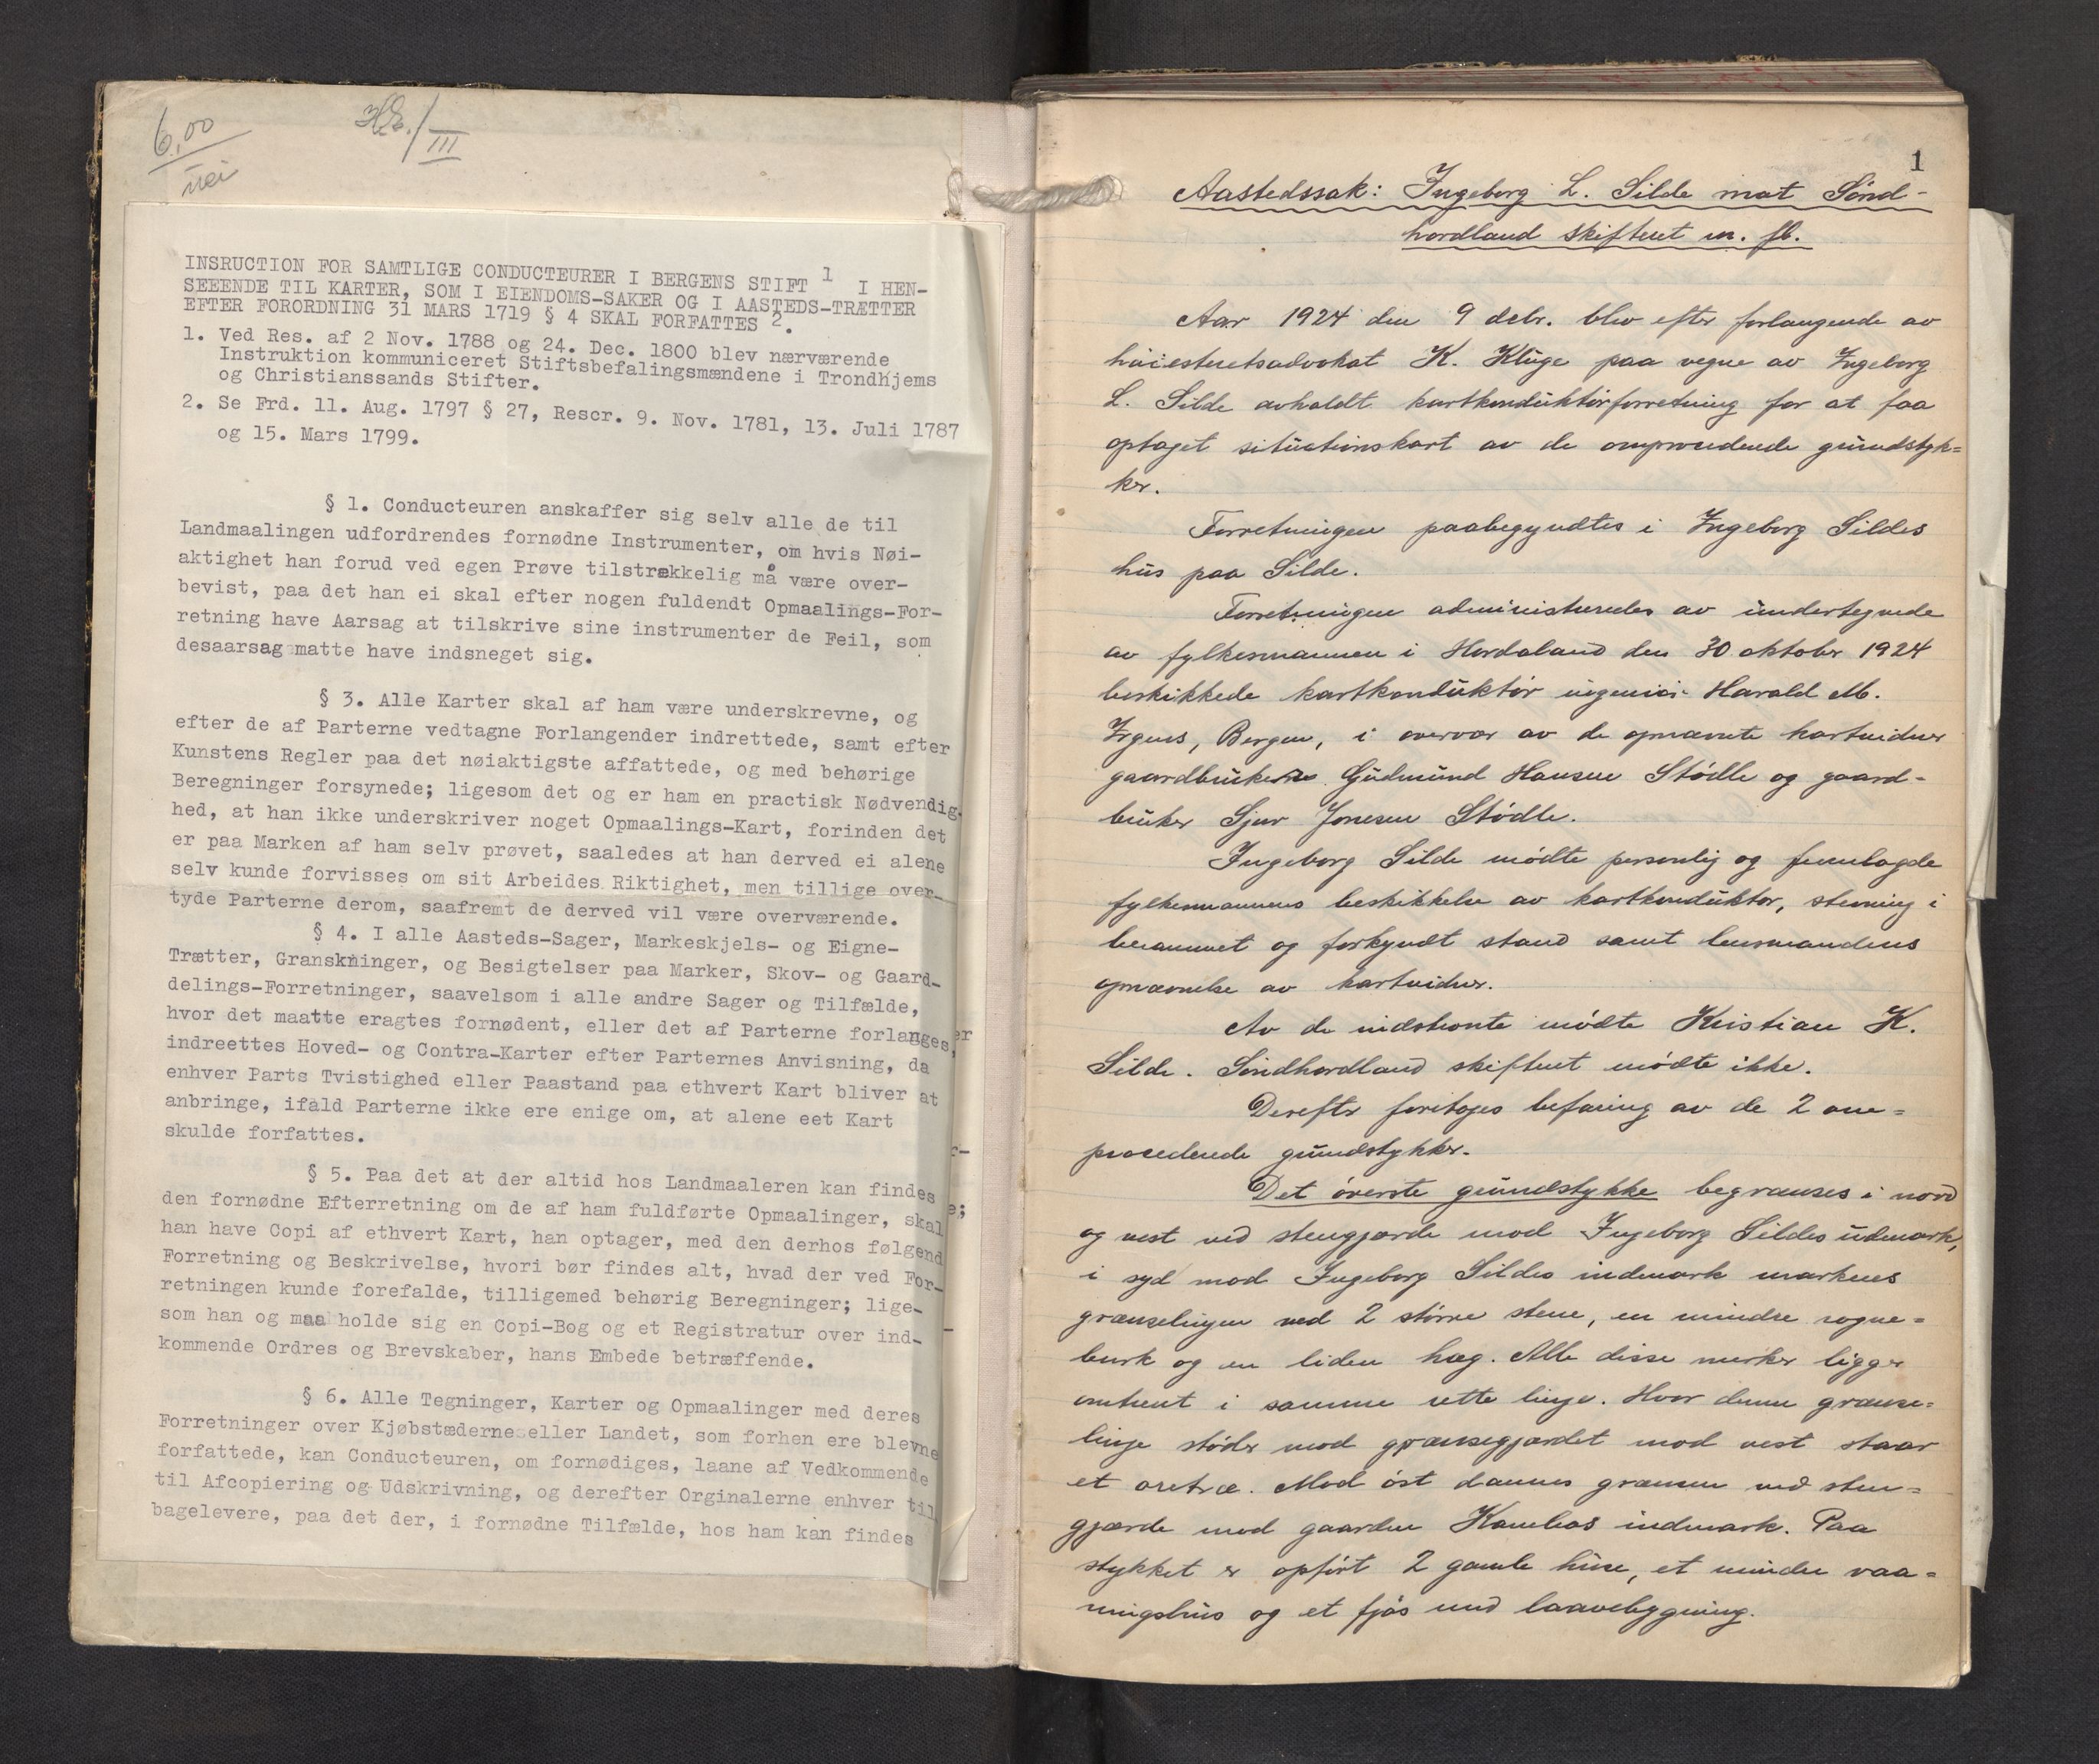 6,00
nei
H.E./III
INSRUCTION FOR SAMTLIGE CONDUCTEURER I BERGENS STIFT 1 I HEN-
SEEENDE TIL KARTER, SOM I EIENDOMS-SAKER OG I AASTEDS-TRÆTTER
EFTER FORORDNING 31 MARS 1719 § 4 SKAL FORFATTES 2.
1. Ved Res. af 2 Nov. 1788 og 24. Dec. 1800 blev nærværende
Instruktion kommuniceret Stiftsbefalingsmændene i Trondhjems
og Christianssands Stifter.
2. Se Frd. 11. Aug. 1797 § 27, Rescr. 9. Nov. 1781, 13. Juli 1787
og 15. Mars 1799.
§ 1. Conducteuren anskaffer sig selv alle de til
Landmaalingen udfordrendes fornødne Instrumenter, om hvis Nøi-
aktighet han forud ved egen Prøve tilstrækkelig må være over-
bevist, paa det han ei skal efter nogen fuldendt Opmaalings-For-
retning have Aarsag at tilskrive sine instrumenter de Feil, som
desaarsag matte have indsneget sig.
§ 3. Alle Karter skal af ham være underskrevne, og
efter de af Parterne vedtagne Forlangender indrettede, samt efter
Kunstens Regler paa det nøiaktigste affattede, og med behørige
Beregninger forsynede; ligesom det og er ham en practisk Nødvendig-
hed, at han ikke underskriver noget Opmaalings-Kart, forinden det
er paa Marken af ham selv prøvet, saaledes at han derved ei alene
selv kunde forvisses om sit Arbeides Riktighet, men tillige over-
tyde Parterne derom, saafremt de derved vil være overværende.
§ 4. I alle Aasteds-Sager, Markeskjels- og Eigne-
Trætter, Granskninger, og Besigtelser paa Marker, Skov- og Gaard-
delings-Forretninger, saavelsom i alle andre Sager og Tilfælde,
hvor det maatte eragtes fornødent, eller det af Parterne forlanges,
indreettes Hoved- og Contra-Karter efter Parternes Anvisning, da
enhver Parts Tvistighed eller Paastand paa ethvert Kart bliver at
anbringe, ifald Parterne ikke ere enige om, at alene eet Kart
skulde forfattes.
§ 5. Paa det at der altid hos Landmaaleren kan findes
den fornødne Efterretning om de af ham fuldførte Opmaalinger, skal
han have Copi af ethvert Kart, han optager, med den derhos følgend
Forretning og Beskrivelse, hvori bør findes alt, hvad der ved For-
retningen kunde forefalde, tilligemed behørig Beregninger; lige-
som han og maa holde sig en Copi-Bog og et Registratur over ind-
kommende Ordres og Brevskaber, hans Embede betræffende.
§ 6. Alle Tegninger, Karter og Opmaalinger med deres
Forretninger over Kjøbstæderne eller Landet, som forhen ere blevne
forfattede, kan Conducteuren, om fornødiges, laane af Vedkommende
til Afcopiering og Udskrivning, og derefter Orginalerne enhver til
bagelevere, paa det der, i fornødne Tilfælde, hos ham kan findes
1
Aastedssak: Ingeborg L. Silde mot Sönd-
hordland skifteret m. fl.
Aar 1924 den 9 debr. blev efter forlangende av
höiesteretsadvokat K. Kluge paa vegne av Ingeborg
L. Silde avholdt kartkonduktörforretning for at faa
optaget situationskart av de omprocederede grundstyk=
ker.
Forretningen paabegyndtes i Ingeborg Sildes
hus paa Silde.
Forretningen administreredes av undertegnede
av fylkesmannen i Hordaland den 30 oktober 1924
beskikkede kartkonduktör ingeniör Harald M.
Irgens, Bergen, i overvær av de opnævnte kartvidner
gaardbrukerne Gudmund Hansen Stödle og gaard-
bruker Sjur Jonesen Stödle.
Ingeborg Silde mödte personlig og fremlagde
fylkesmannens beskikkelse av kartkonduktör, stevning i
berammet og forkyndt stand samt lensmandens
opnævnelse av kartvidner.
Av de indstevnte mödte Kristian K.
Silde. Söndhordland skifteret mödte ikke.
Derefter foretoges befaring av de 2 om=
procederede grundstykker.
Det överste grundstykke begrænses i nord
og vest ved stengjærde mod Ingeborg Sildes udmark,
i syd mod Ingeborg Sildes indmark markeres
grænselinjen ved 2 större stene, en mindre rogne=
busk og en liden hæg. Alle disse merker ligger
omtrent i samme rette linje. Hvor denne grænse=
linje stöder mod grænsegjærdet mod vest staar
et oretræ. Mod öst dannes grænsen ved sten=
gjærde mod gaarden Kambos indmark. Paa
stykket er opfört 2 gamle huse, et mindre vaa=
ningshus og et fjös med laavebygning.